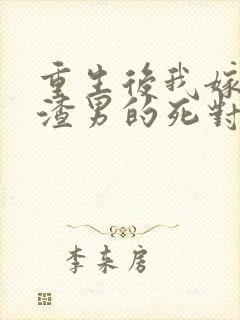 重生後我嫁
渣男的死對
李東房